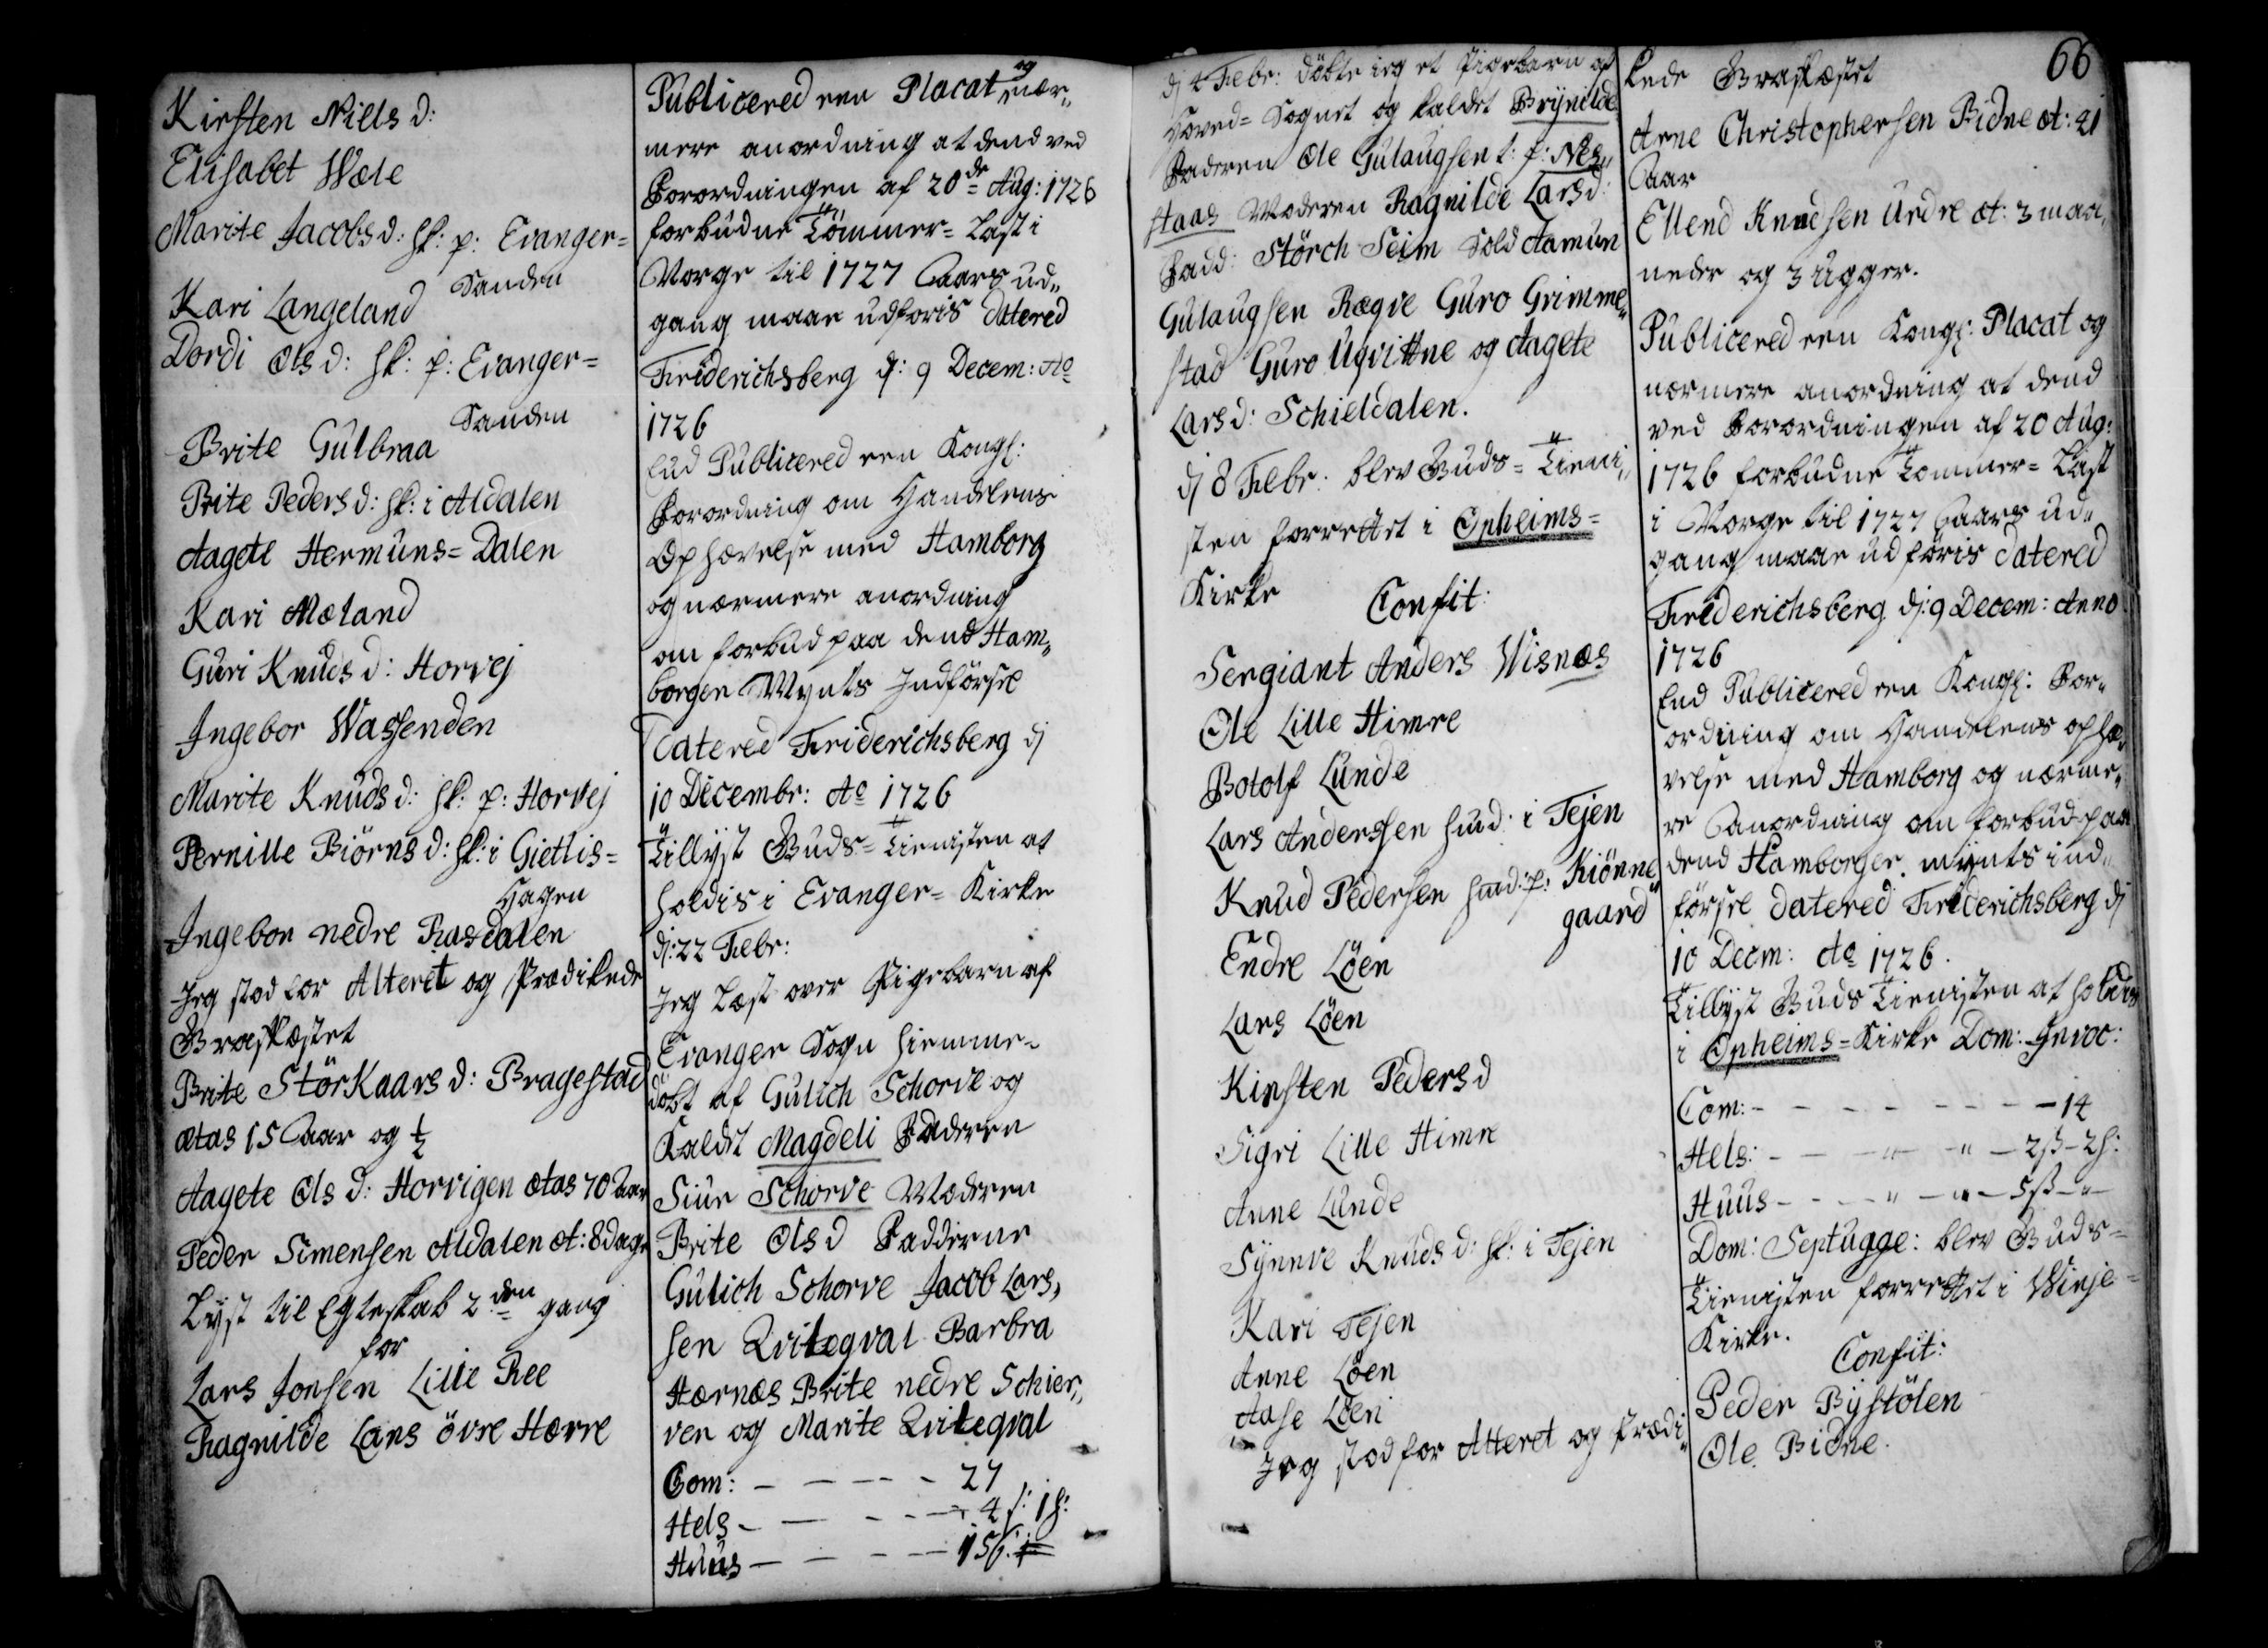 Kirsten Nills d:
Elisabet Wæle
Marite Jacobs d: hk: p: Evanger=
Sanden
Kari Langeland
Dordi Ols d: hk: p: Evanger=
Sanden
Brite Gulbraa
Brite Peders d: hk: i Aldalen
Aagete Hermuns=Dalen
Kari Mæland
Guri Knuds d: Horvej
Ingebor Wassenden
Marite Knuds d: hk: p: Horvej
Pernille Biörns d: hk: i Giettis=
Hagen
Ingebor nedre Rasdalen
Jeg stod for Alteret og Prædikede
Graskæstet
Brite Störkaars d: Bragestad
ætas 15 Aar og ½
Aagete Ols d: Horvigen ætas 70 Aar
Peder Simensen Aldalen æt: 8 dage
Lyst til Egteskab 2den gang
for
Lars Jonsen Lille Ree
Ragnilde Lars övre Hærre
Publicered een Placat og nær„
mere anordning at dend ved
Forordningen af 20de Aug: 1726
forbudne Tömmer=Last i
Norge til 1727 Aars ud„
gang maae udföris datered
Friderichsberg d: 9 Decem: Ao
1726
End Publicered een Kongl:
Forordning om Handelens
Ophævelse med Hamborg
og nærmere anordning
om forbud paa dend Ham„
borger Mynts Indförsel
Datered Friderichsberg dj
10 Decembr: Ao 1726
Tillyst Guds=Tienisten at
holdis i Evanger=Kirke
dj: 22 Febr:
Jeg Læst over Pigebarn af
Evanger Sogn hiemme=
döbt af Gulich Schorve og
Kaldet Magdeli Faderen
Siur Schorve Moderen
Brite Ols d Fadderne
Gulich Schorve Jacob Lars,
sen Qviteqval Barbra
Hærnæs Brite nedre Schier„
ven og Marite Qviteqval
Com: – – – – – 27
Hels – – – – – 4 s: 1 h:
Huus – – – – 15 s:
dj 2 Febr: döbte ieg et Pigebarn af
Hoved=Sognet og kaldet Brynilde
Faderen Ole Gulaugsen t: p: Nes„
haas Moderen Ragnilde Lars d:
Fadd: Störch Seim Sold Aamun
Gulaugsen Rægve Guro Grimme„
stad Guro Uqvittne og Aagete
Lars d: Schieldalen.
dj 8 Febr: blev Guds=Tieni„
sten forrettet i Opheims=
Kirke
Confit:
Sergiant Anders Wisnæs
Ole Lille Himre
Botolf Lunde
Lars Anderssen hmd: i Tejen
Knud Pedersen hmd: p: Kiönne„
gaard
Endre Löen
Lars Löen
Kirsten Peders d
Sigri Lille Himre
Anne Lunde
Synnve Knuds d: hk: i Tejen
Kari Tejen
Anne Löen
Aase Löen
Jeg stod for Alteret og Prædi„
66
kede Graskæstet
Arne Christophersen Bidne æt: 21
Aar
Ellend Knudsen Urdre æt: 3 maa„
neder og 3 Ugger.
Publicered een Kongl: Placat og
nærmere anordning at dend
ved Forordningen af 20 Aug:
1726 forbudne Tömmer=Last
i Norge til 1727 Aars ud„
gang maae udföris datered
Friderichsberg dj: 9 Decem: Anno
1726
End Publicered een Kongl: For„
ordning om Handelens ophæ„
velse med Hamborg og nærme„
re Anordning om forbud paa
dend Hamborger mynts ind„
försel datered Friderichsberg dj
10 Decm: Ao 1726.
Tillyst Guds Tienisten at holdis
i Opheims=Kirke Dom: Invoc:
Com: – – – – – – – 14
Hels: – – – „ – „ – 2 ß – 2 h:
Huus – – – – „ – „ – 5 ß – „ –
Dom: Septugge: blev Guds=
Tienisten forrettet i Winje=
Kirke.
Confit:
Peder Bystölen
Ole Bidne.